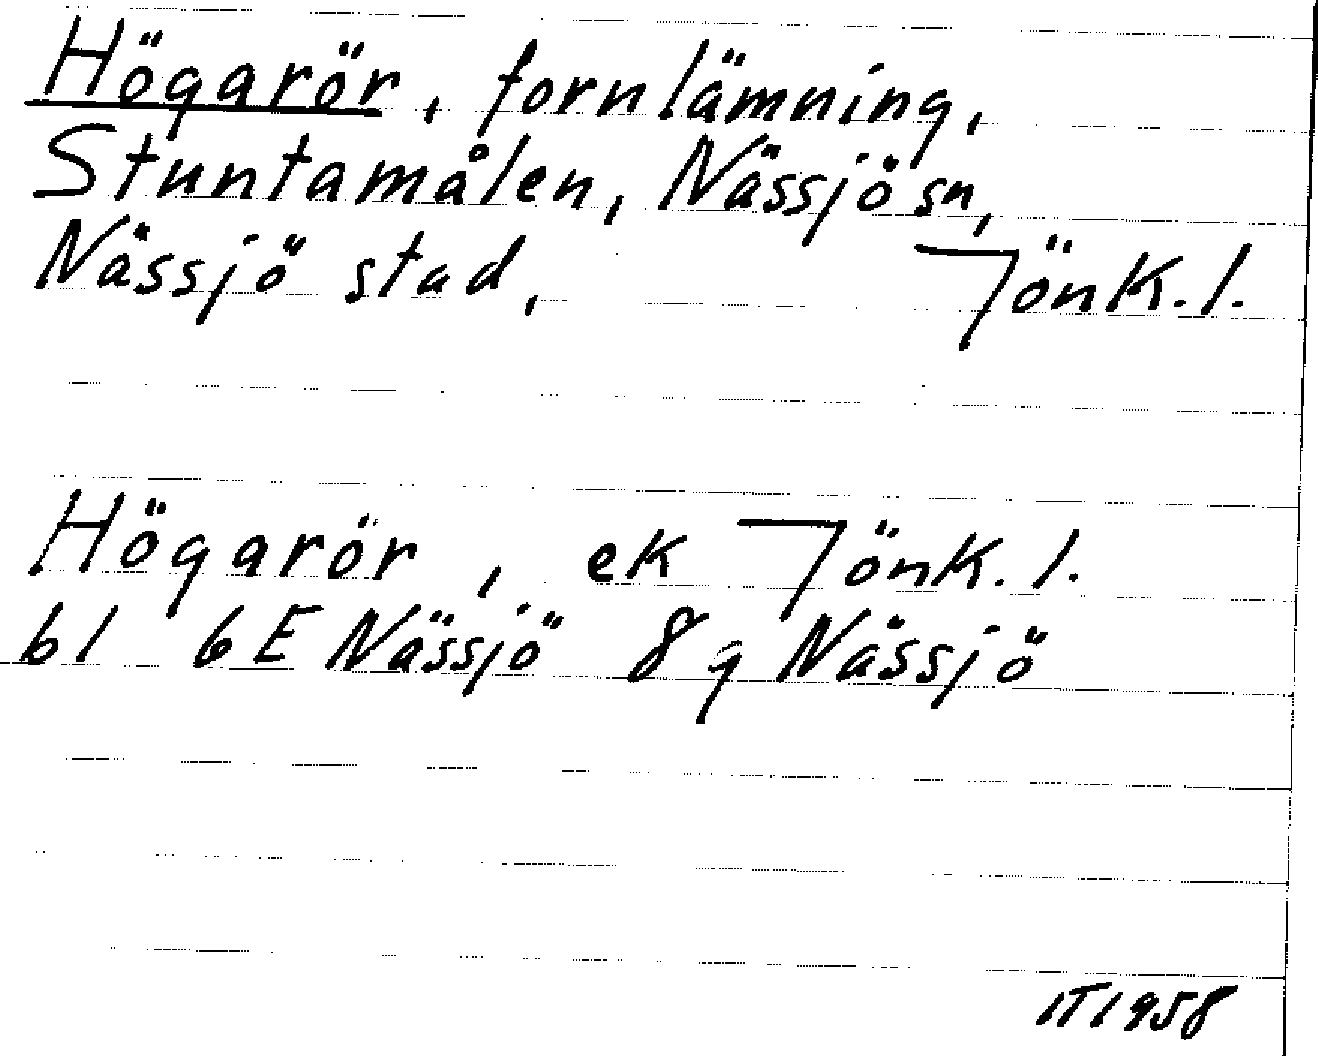 Högarör, fornlämning,
Stuntamålen, Nässjö sn,
Nässjö stad, Jönk.l.
Högarör, ek Jönk.l.
bl 6E Nässjö 8g Nässjö
IT1958